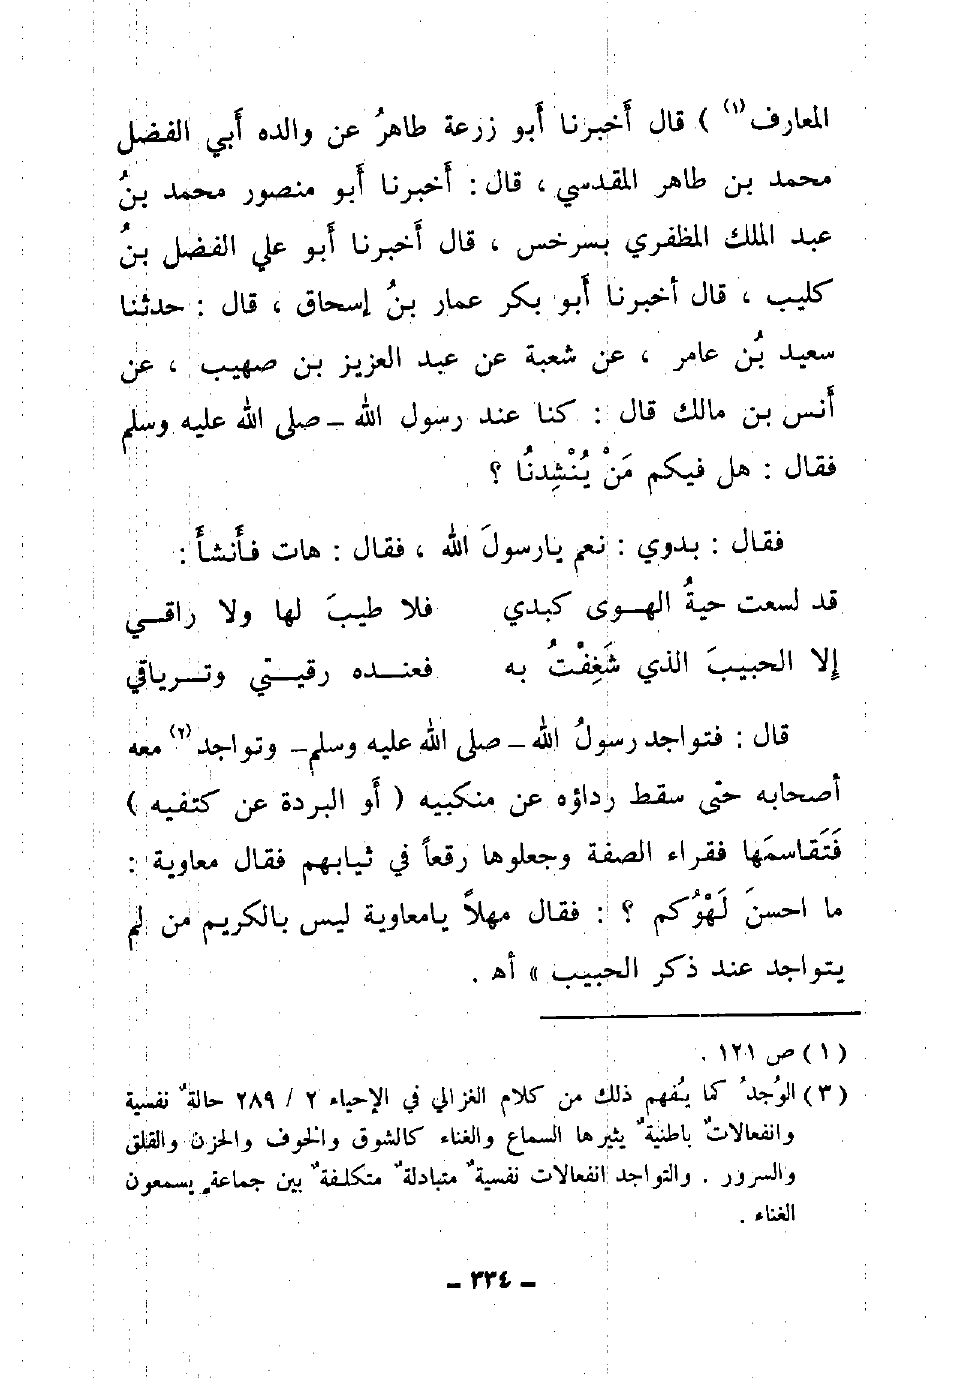 المعارف(١) ) قال أَخبرنا أَبو زرعة طاهرُ عن والده أَبي الفضل
محمد بن طاهر المقدسي ، قال : أَخبرنا أَبو منصور محمد بنُ
عبد الملك المظفري بسرخس ، قال أَخبرنا أَبو علي الفضل بنُ
كليب ، قال أخبرنا أَبو بكر عمار بنُ إسحاق ، قال : حدثنا
سعيد بُن عامر ، عن شعبة عن عبد العزيز بن صهيب ، عن
أَنس بن مالك قال : كنا عند رسول الله ــ صلى الله عليه وسلم
فقال : هل فيكم مَنْ يُنْشِدنُا ؟
فقال : بدوي : نعم يارسولَ الله ، فقال : هات فأَنشأَ :
قد لسعت حيةُ الهوى كبدي فلا طيبَ لها ولا راقي
إلا الحبيبَ الذي شَغِفْتُ به فعنده رقيتي وترياقي
قال : فتواجد رسولُ الله ــ صلى الله عليه وسلم ــ وتواجد(٢) معه
أصحابه حتى سقط رداؤه عن منكبيه ( أَو البردة عن كتفيه )
فَتَقاسمَها فقراء الصفة وجعلوها رقعاً في ثيابهم فقال معاوية :
ما احسنَ لَهْوُكم ؟ : فقال مهلاً يامعاوية ليس بالكريم من لم
يتواجد عند ذكر الحبيب » أه .
(١) ص ١٢١ .
(٣) الوُجدُ كما يُفهم ذلك من كلام الغزالي في الإحياء ٢ / ٢٨٩ حالةٌ نفسية
وانفعالاتٌ باطنيةٌ يثيرها السماع والغناء كالشوق والخوف والحزن والقلق
والسرور . والتواجد انفعالات نفسيةٌ متبادلةٌ متكلفةٌ بين جماعةٍ يسمعون
الغناء .
ــ ٣٣٤ ــ